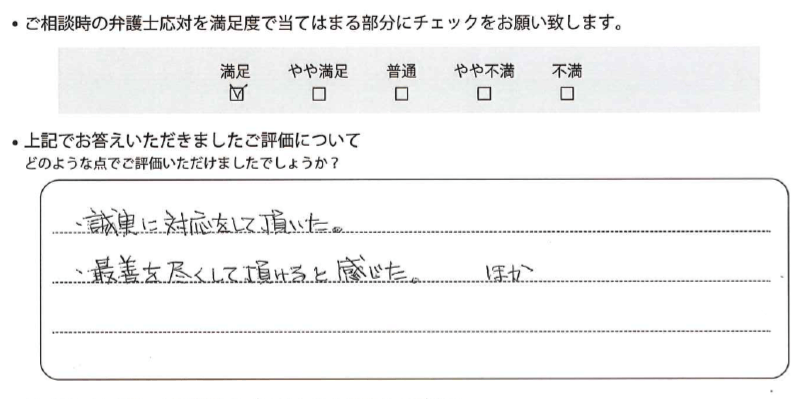 • ご相談時の弁護士応対を満足度で当てはまる部分にチェックをお願い致します。
満足 やや満足 普通 やや不満 不満
☑ ☐ ☐ ☐ ☐
• 上記でお答えいただきましたご評価について
どのような点でご評価いただけましたでしょうか？
・誠実に対応をして頂いた。
・最善を尽くして頂けると感じた。 ほか